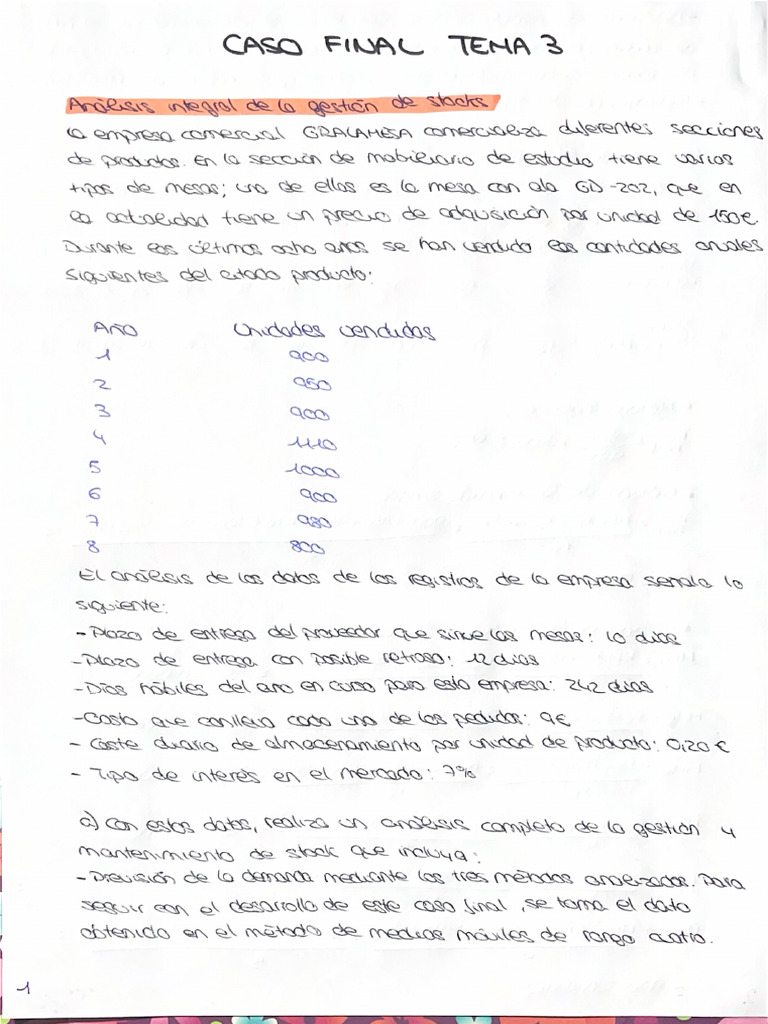 CASO FINAL TEMA 3
Análisis integral de la gestión de stocks
La empresa comercial GRALAMESA comercializa diferentes secciones
de productos. En la sección de mobiliario de estudio tiene varios
tipos de mesas; una de ellas es la mesa con ala GD-202, que en
la actualidad tiene un precio de adquisición por unidad de 150€
Durante los últimos ocho años se han vendido las cantidades anuales
siguientes del citado producto:
Año Unidades vendidas
1 900
2 950
3 900
4 1110
5 1000
6 900
7 980
8 800
El análisis de los datos de los registros de la empresa señala lo
siguiente:
- Plazo de entrega del proveedor que sirve las mesas: 10 días
- Plazo de entrega con posible retraso: 12 días
- Días hábiles del año en curso para esta empresa: 242 días
- Costo que conlleva cada uno de los pedidos: 9€
- Coste diario de almacenamiento por unidad de producto: 0,20 €
- Tipo de interés en el mercado: 7%
a) Con estos datos, realiza un análisis completo de la gestión y
mantenimiento de stock que incluya:
- Previsión de la demanda mediante los tres métodos analizados. Para
seguir con el desarrollo de este caso final, se toma el dato
obtenido en el método de medias móviles de rango cuatro.
1